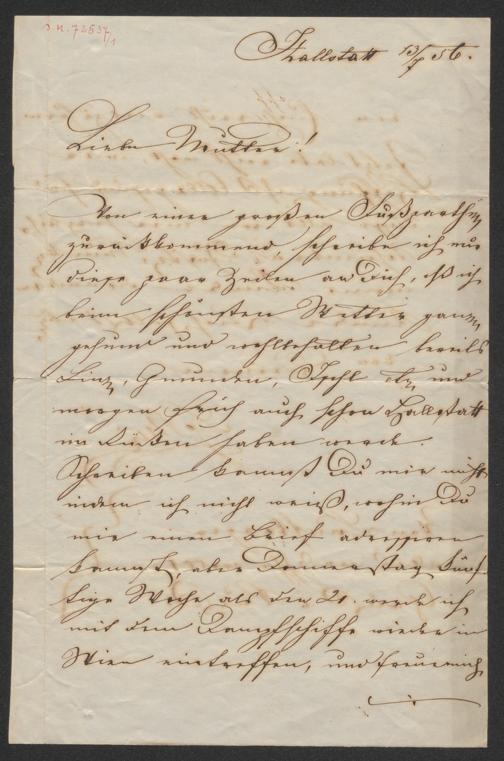 J.N. 72537/1
Hallstatt 13/7 56.
Liebe Mutter!
Von einer großen Fußparthie
zurückkommend, schreibe ich nur
diese paar Zeilen an Dich, daß ich
beim schönsten Wetter ganz
gesund und wohlbehalten bereits
Linz, Gmunden, Ischl etc und
morgen früh auch schon Hallstatt
im Rücken haben werde.
Schreiben kannst Du mir nicht
indem ich nicht weiß, wohin Du
mir einen Brief adressiren
kannst, aber Donnerstag künf
tige Woche als den 24. werde ich
mit dem Dampfschiffe wieder in
Wien eintreffen, und freue mich